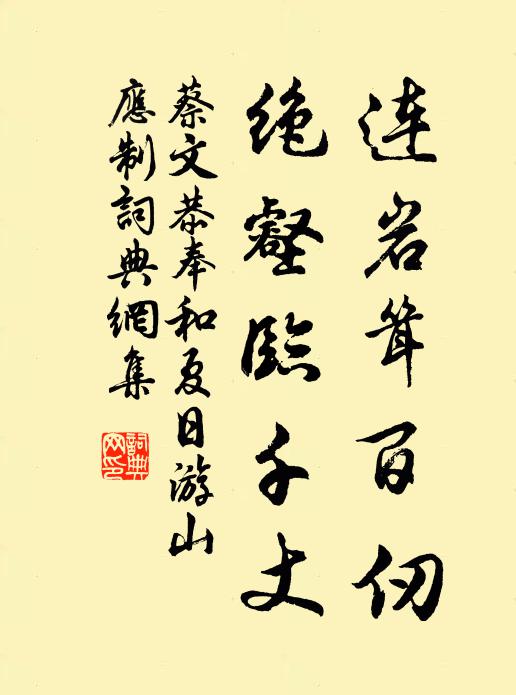 连岩耸百仞
绝壑临千丈
蔡文恭奉和夏日游山
應制詞典網集
詞典網印